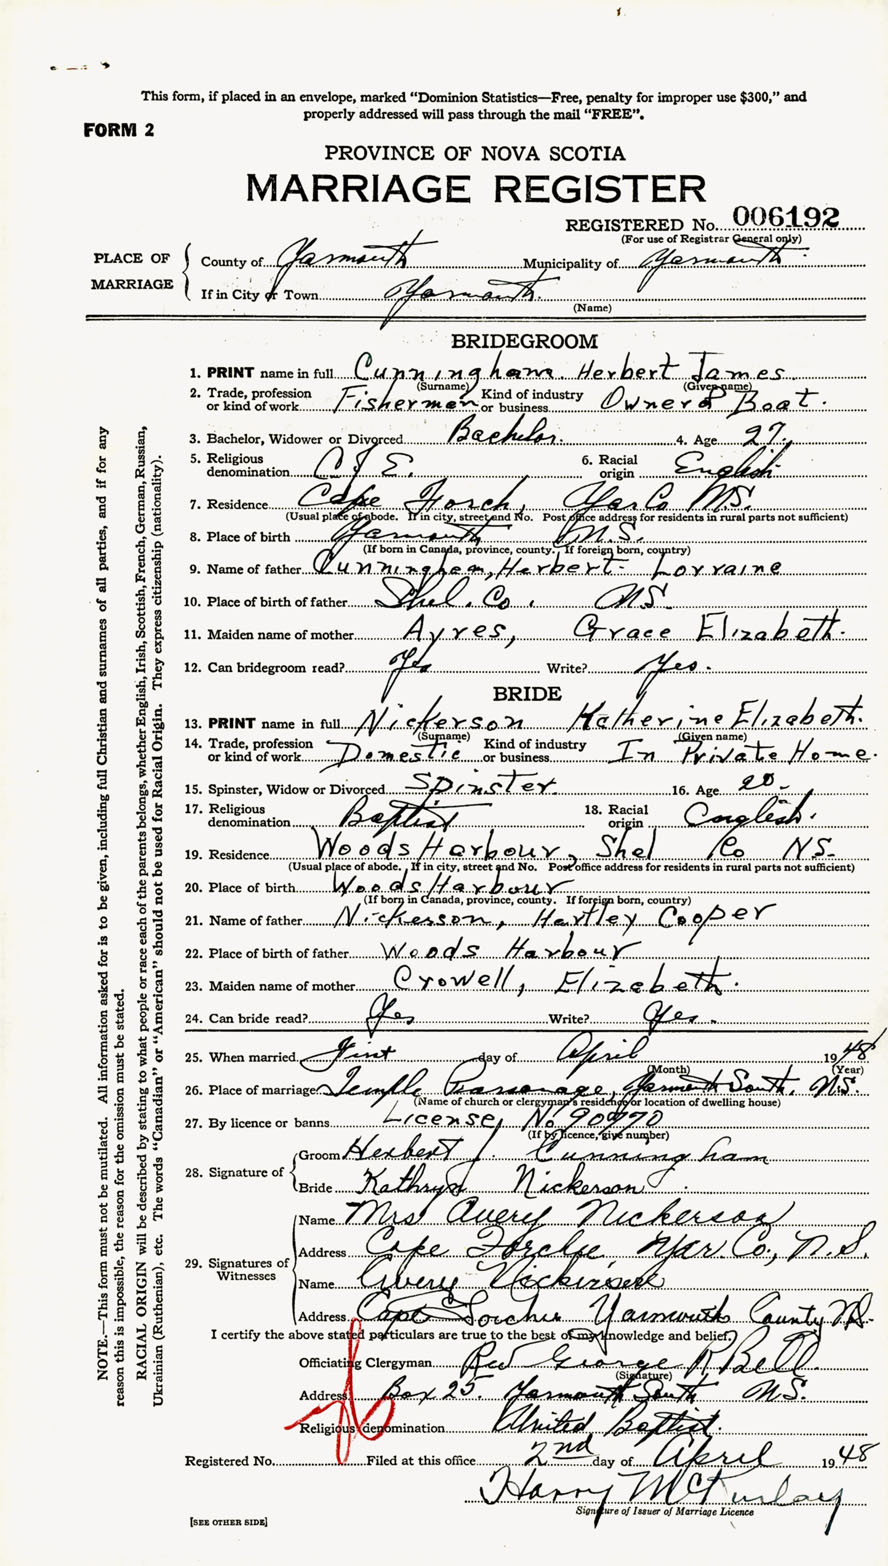 This form, if placed in an envelope, marked "Dominion Statistics—Free, penalty for improper use $300," and
properly addressed will pass through the mail "FREE".
FORM 2
PROVINCE OF NOVA SCOTIA
MARRIAGE REGISTER
REGISTERED No. 006192
(For use of Registrar General only)
PLACE OF MARRIAGE
County of Yarmouth Municipality of Yarmouth
If in City or Town Yarmouth
(Name)
BRIDEGROOM
1. PRINT name in full Cunningham Herbert James
(Surname) (Given name)
2. Trade, profession or kind of work Fisherman Kind of industry or business Owner of Boat.
3. Bachelor, Widower or Divorced Bachelor. 4. Age 27.
5. Religious denomination C of E. 6. Racial origin English
7. Residence Cape Forch, Yar Co N.S.
(Usual place of abode. If in city, street and No. Post office address for residents in rural parts not sufficient)
8. Place of birth Yarmouth N.S.
(If born in Canada, province, county. If foreign born, country)
9. Name of father Cunningham, Herbert Lorraine
10. Place of birth of father Shel. Co. N.S.
11. Maiden name of mother Ayres, Grace Elizabeth.
12. Can bridegroom read? Yes Write? Yes.
BRIDE
13. PRINT name in full Nickerson Katherine Elizabeth.
(Surname) (Given name)
14. Trade, profession or kind of work Domestic Kind of industry or business In Private Home.
15. Spinster, Widow or Divorced Spinster. 16. Age 20.
17. Religious denomination Baptist 18. Racial origin English.
19. Residence Woods Harbour, Shel Co N.S.
(Usual place of abode. If in city, street and No. Post office address for residents in rural parts not sufficient)
20. Place of birth Woods Harbour
(If born in Canada, province, county. If foreign born, country)
21. Name of father Nickerson, Hartley Cooper
22. Place of birth of father Woods Harbour
23. Maiden name of mother Crowell, Elizabeth.
24. Can bride read? Yes Write? Yes.
25. When married First day of April 1948
(Month) (Year)
26. Place of marriage Temple Parsonage, Yarmouth South, N.S.
(Name of church or clergyman's residence or location of dwelling house)
27. By licence or banns License, No. 90970
(If by licence, give number)
28. Signature of
Groom Herbert J. Cunningham
Bride Kathryn Nickerson
29. Signatures of Witnesses
Name Mrs Avery Nickerson
Address Cape Forchu Yar. Co., N.S.
Name Avery Nickerson
Address Cape Forchu Yarmouth County N.S.
I certify the above stated particulars are true to the best of my knowledge and belief.
Officiating Clergyman Rev George R Bell
(Signature)
Address Box 25. Yarmouth South N.S.
Religious denomination United Baptist.
Registered No. Filed at this office 2nd day of April 1948
Harry McKinlay
Signature of Issuer of Marriage Licence
[SEE OTHER SIDE]
NOTE.—This form must not be mutilated. All information asked for is to be given, including full Christian and surnames of all parties, and if for any
reason this is impossible, the reason for the omission must be stated.
RACIAL ORIGIN will be described by stating to what people or race each of the parents belongs, whether English, Irish, Scottish, French, German, Russian,
Ukrainian (Ruthenian), etc. The words "Canadian" or "American" should not be used for Racial Origin. They express citizenship (nationality).